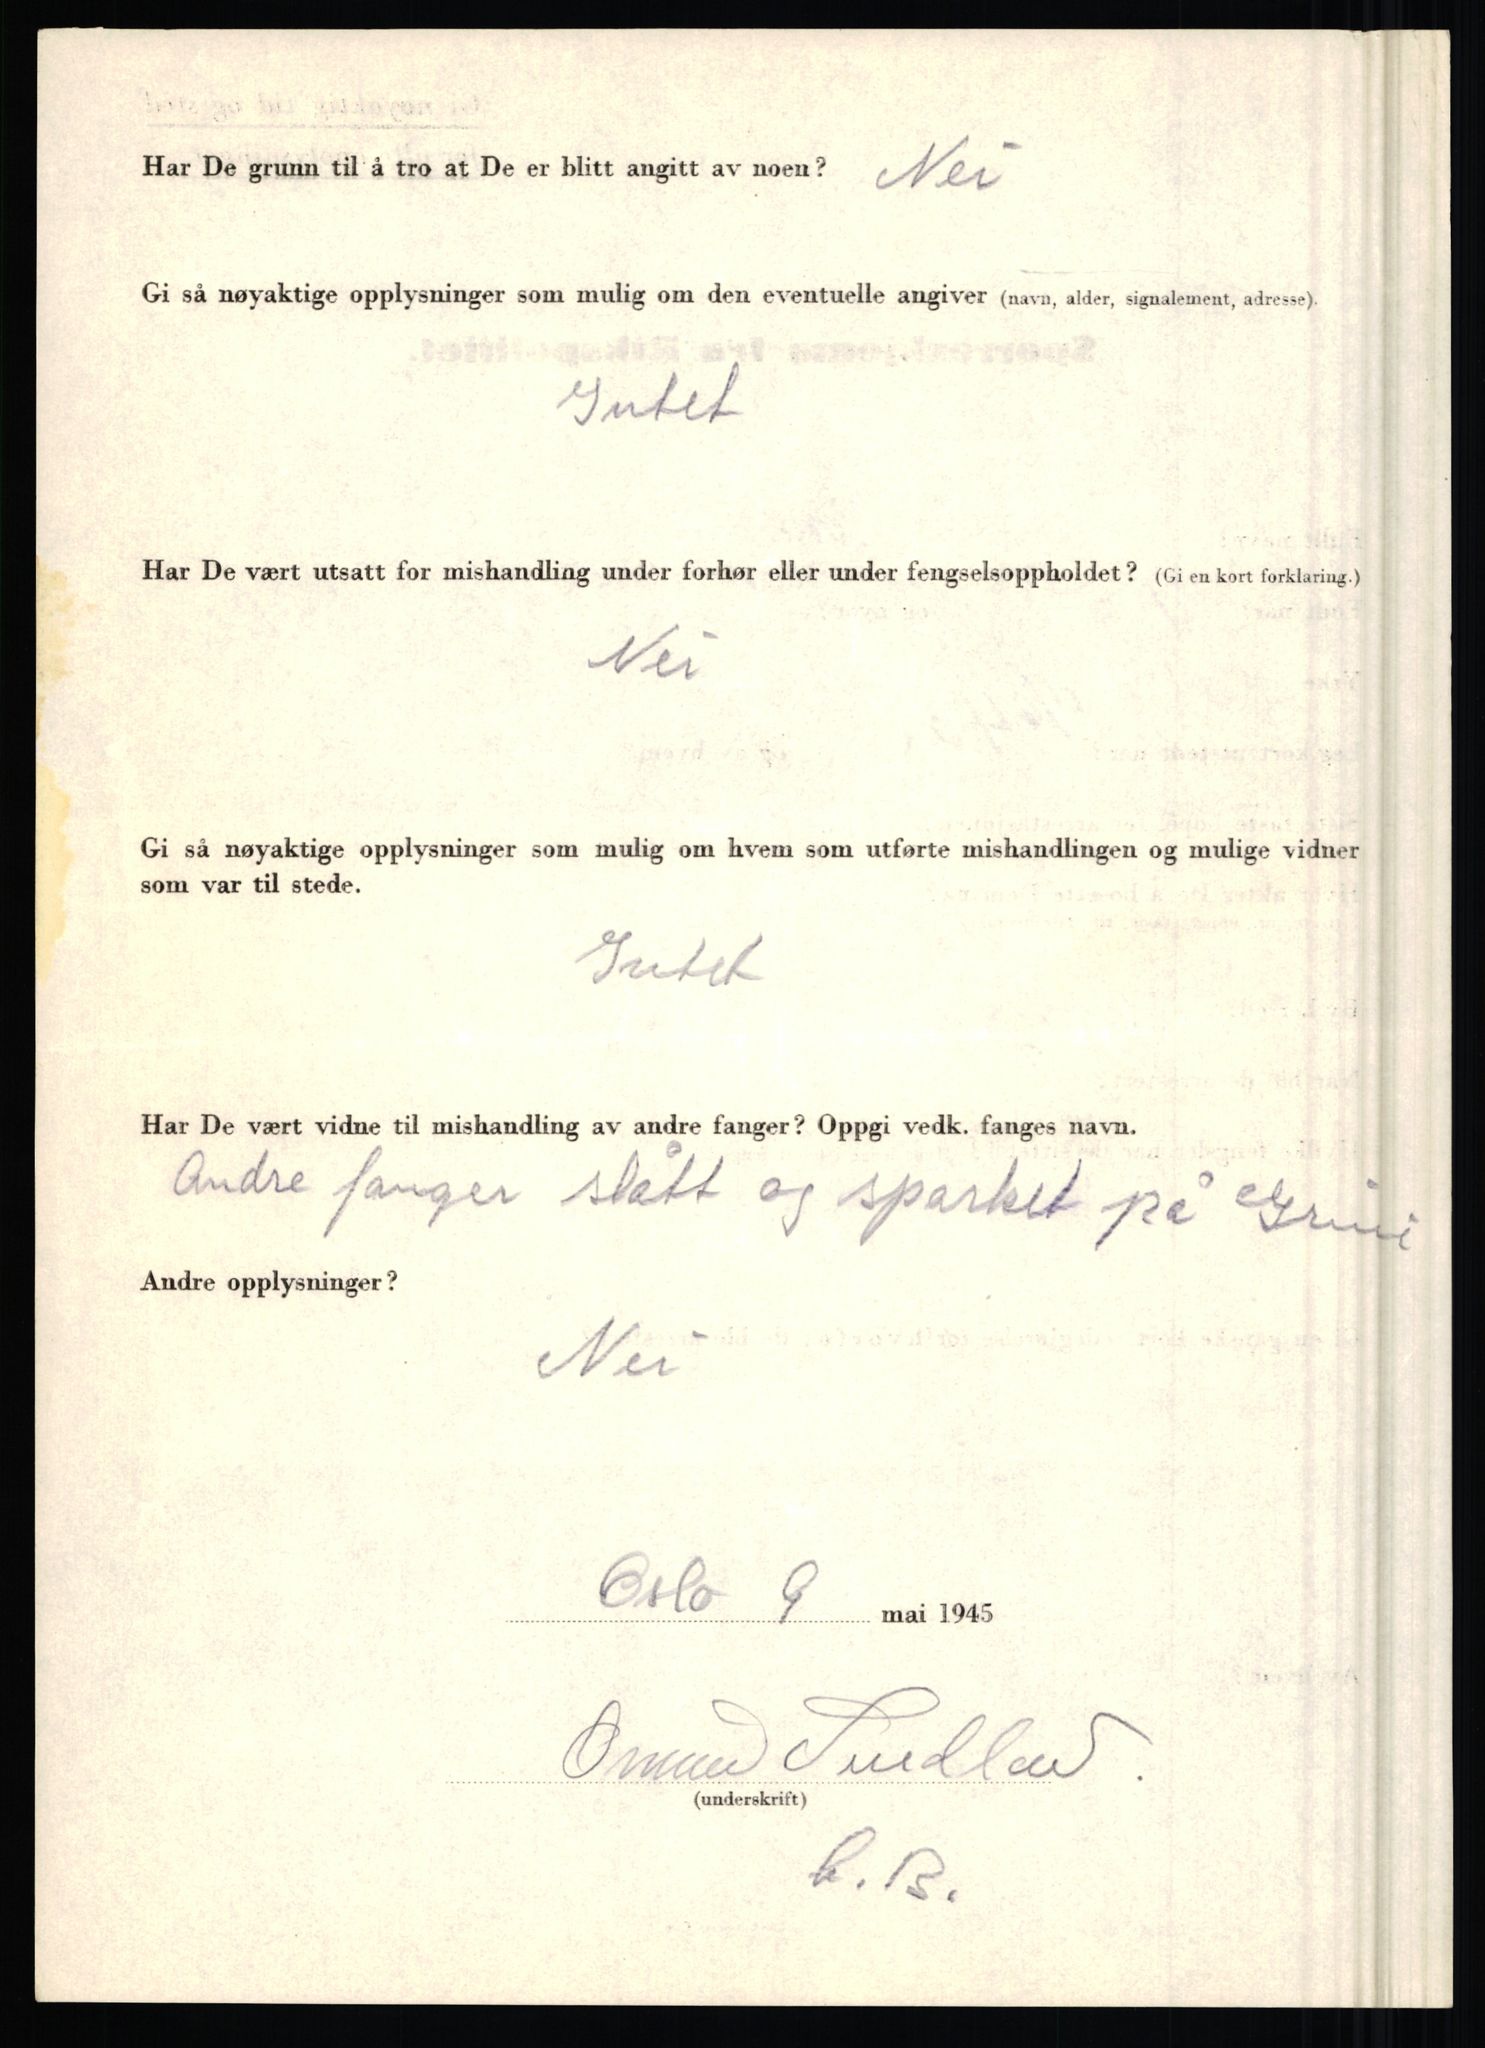 Har De grunn til å tro at De er blitt angitt av noen? Nei
Gi så nøyaktige opplysninger som mulig om den eventuelle angiver (navn, alder, signalement, adresse).
Intet
Har De vært utsatt for mishandling under forhør eller under fengselsoppholdet? (Gi en kort forklaring.)
Nei
Gi så nøyaktige opplysninger som mulig om hvem som utførte mishandlingen og mulige vidner
som var til stede.
Intet
Har De vært vidne til mishandling av andre fanger? Oppgi vedk. fanges navn.
Andre fanger slått og sparket på Grini
Andre opplysninger?
Nei
Oslo 9 mai 1945
Omund
(underskrift)